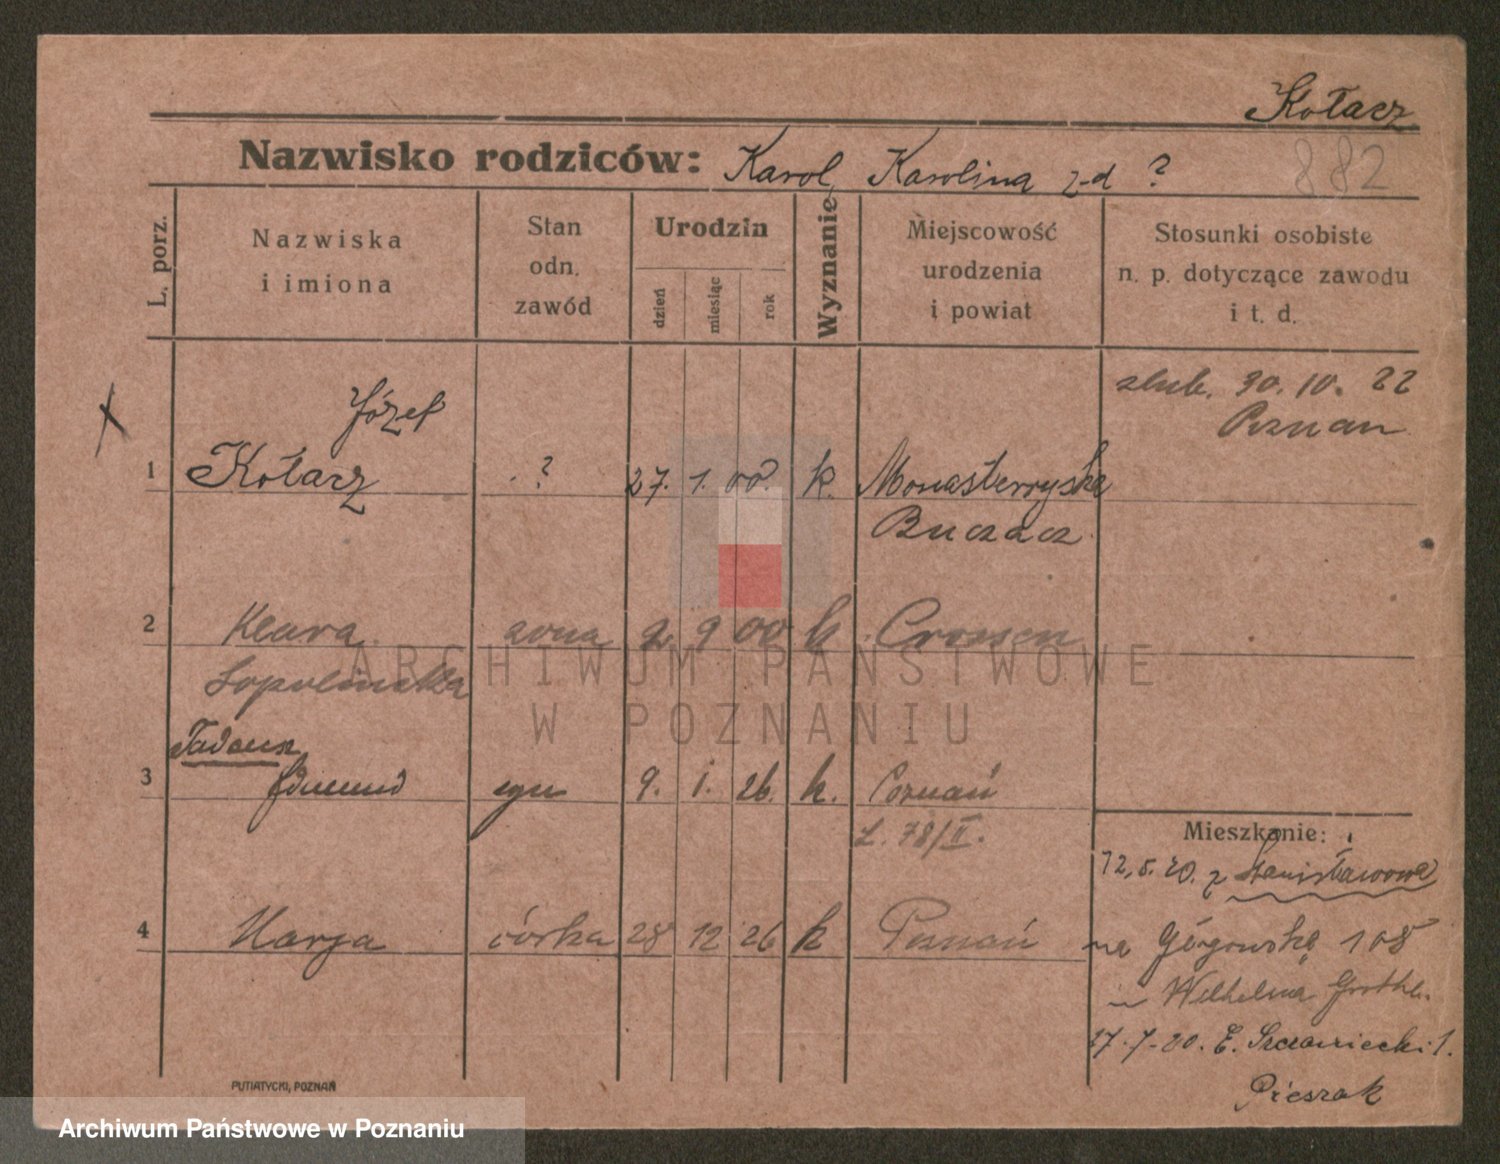 Kołacz
Nazwisko rodziców: Karol, Karolina z-d ?
882
L. porz.
Nazwiska
i imiona
Stan
odn.
zawód
Urodzin
dzień
miesiąc
rok
Wyznanie
Miejscowość
urodzenia
i powiat
Stosunki osobiste
n. p. dotyczące zawodu
i t. d.
ślub. 30. 10. 22
Poznan
Józef
1 Kołacz ? 27. 1. 00. k. Monasterzyska
Buczacz
2 Klara żona 2 9 00 k Crossen
Tadeusz
3 Edmund syn 9. 1. 26. k. Poznań
L. 78/II.
Mieszkanie:
12, 5. 20. z Stanisławowa
4 Marja córka 28 12 26 k Poznań
na Górgowską 108
Wilhelma
27-7-20. E. Szczaniecki 1.
Pieszak
PUTIATYCKI, POZNAŃ
ARCHIWUM PAŃSTWOWE
W POZNANIU
Archiwum Państwowe w Poznaniu